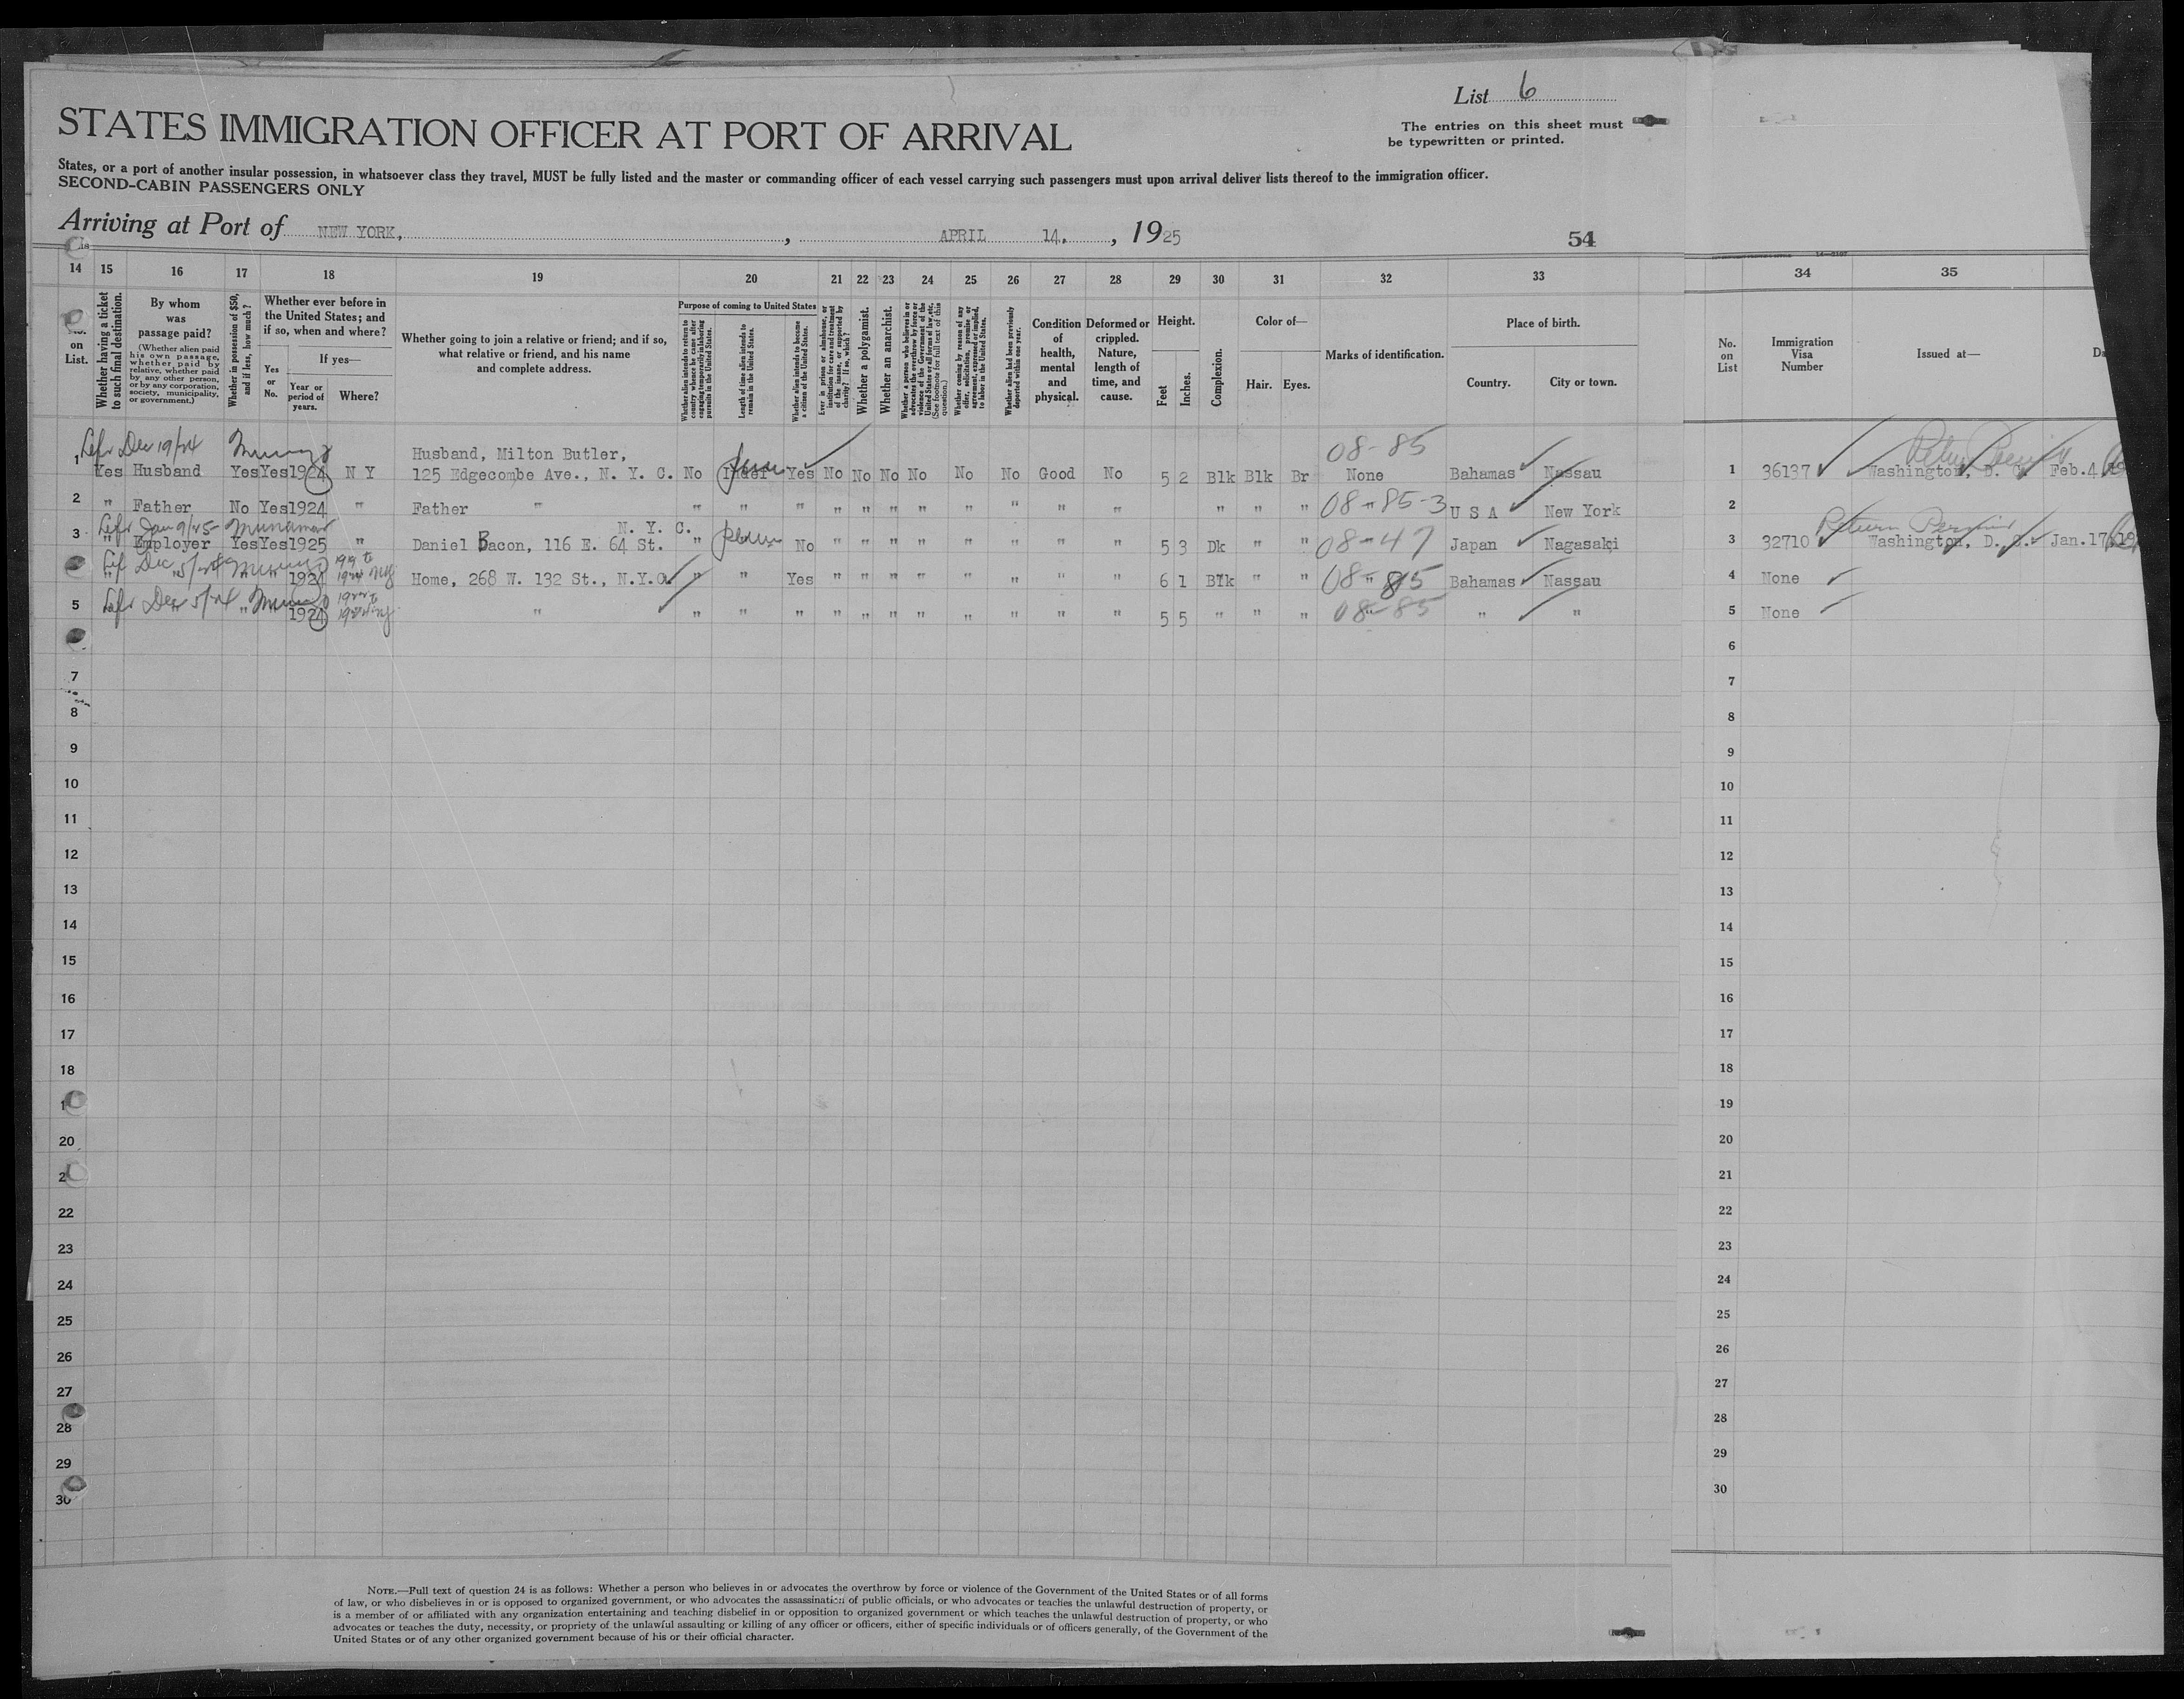 List 6
The entries on this sheet must
be typewritten or printed.
STATES IMMIGRATION OFFICER AT PORT OF ARRIVAL
States, or a port of another insular possession, in whatsoever class they travel, MUST be fully listed and the master or commanding officer of each vessel carrying such passengers must upon arrival deliver lists thereof to the immigration officer.
SECOND-CABIN PASSENGERS ONLY
Arriving at Port of NEW YORK, , APRIL 14, , 1925
54
14 15 16 17 18 19 20 21 22 23 24 25 26 27 28 29 30 31 32 33 34 35
on
List.
Whether having a ticket
to such final destination.
By whom
was
passage paid?
(Whether alien paid
his own passage,
whether paid by
relative, whether paid
by any other person,
or by any corporation,
society, municipality,
or government.)
Whether in possession of $50,
and if less, how much?
Whether ever before in
the United States; and
if so, when and where?
Yes
or
No.
If yes—
Year or
period of
years.
Where?
Whether going to join a relative or friend; and if so,
what relative or friend, and his name
and complete address.
Purpose of coming to United States
Whether alien intends to return to
country whence he came after
engaging temporarily in laboring
pursuits in the United States.
Length of time alien intends to
remain in the United States.
Whether alien intends to become
a citizen of the United States.
Ever in prison or almshouse, or
institution for care and treatment
of the insane, or supported by
charity? If so, which?
Whether a polygamist.
Whether an anarchist.
Whether a person who believes in or
advocates the overthrow by force or
violence of the Government of the
United States or all forms of law, etc.
(See footnote for full text of this
question.)
Whether coming by reason of any
offer, solicitation, promise or
agreement, expressed or implied,
to labor in the United States.
Whether alien had been previously
deported within one year.
Condition
of
health,
mental
and
physical.
Deformed or
crippled.
Nature,
length of
time, and
cause.
Height.
Feet
Inches.
Complexion.
Color of—
Hair. Eyes.
Marks of identification.
Place of birth.
Country. City or town.
No.
on
List
Immigration
Visa
Number
Issued at—
Left Dec 19/24 08-85
Husband, Milton Butler,
1 Yes Husband Yes Yes 1924 N Y 125 Edgecombe Ave., N. Y. C. No Yes No No No No No No Good No 5 2 Blk Blk Br None Bahamas Nassau 1 36137 Washington, D. C. Feb. 4
2 " Father No Yes 1924 " Father " " " " " " " " " " " " " " " 08-85-3 U S A New York 2
Left Jan 9/25 Munamar N. Y. C. Return Permit
3 " Employer Yes Yes 1925 " Daniel Bacon, 116 E. 64 St. " No " " " " " " " " 5 3 Dk " " 08-47 Japan Nagasaki 3 32710 Washington, D. C. Jan. 17
Left Dec 5/24
" " " 1924 Home, 268 W. 132 St., N.Y.C. " " Yes " " " " " " " " 6 1 Blk " " 08-85 Bahamas Nassau 4 None
Left Dec 5/24
5 " 1924 " " " " " " " " " " " " 5 5 " " " 08-85 " " 5 None
6
7 7
8 8
9 9
10 10
11 11
12 12
13 13
14 14
15 15
16 16
17 17
18 18
19
20 20
21
22 22
23 23
24 24
25 25
26 26
27 27
28 28
29 29
30 30
NOTE.—Full text of question 24 is as follows: Whether a person who believes in or advocates the overthrow by force or violence of the Government of the United States or of all forms
of law, or who disbelieves in or is opposed to organized government, or who advocates the assassination of public officials, or who advocates or teaches the unlawful destruction of property, or
is a member of or affiliated with any organization entertaining and teaching disbelief in or opposition to organized government or which teaches the unlawful destruction of property, or who
advocates or teaches the duty, necessity, or propriety of the unlawful assaulting or killing of any officer or officers, either of specific individuals or of officers generally, of the Government of the
United States or of any other organized government because of his or their official character.